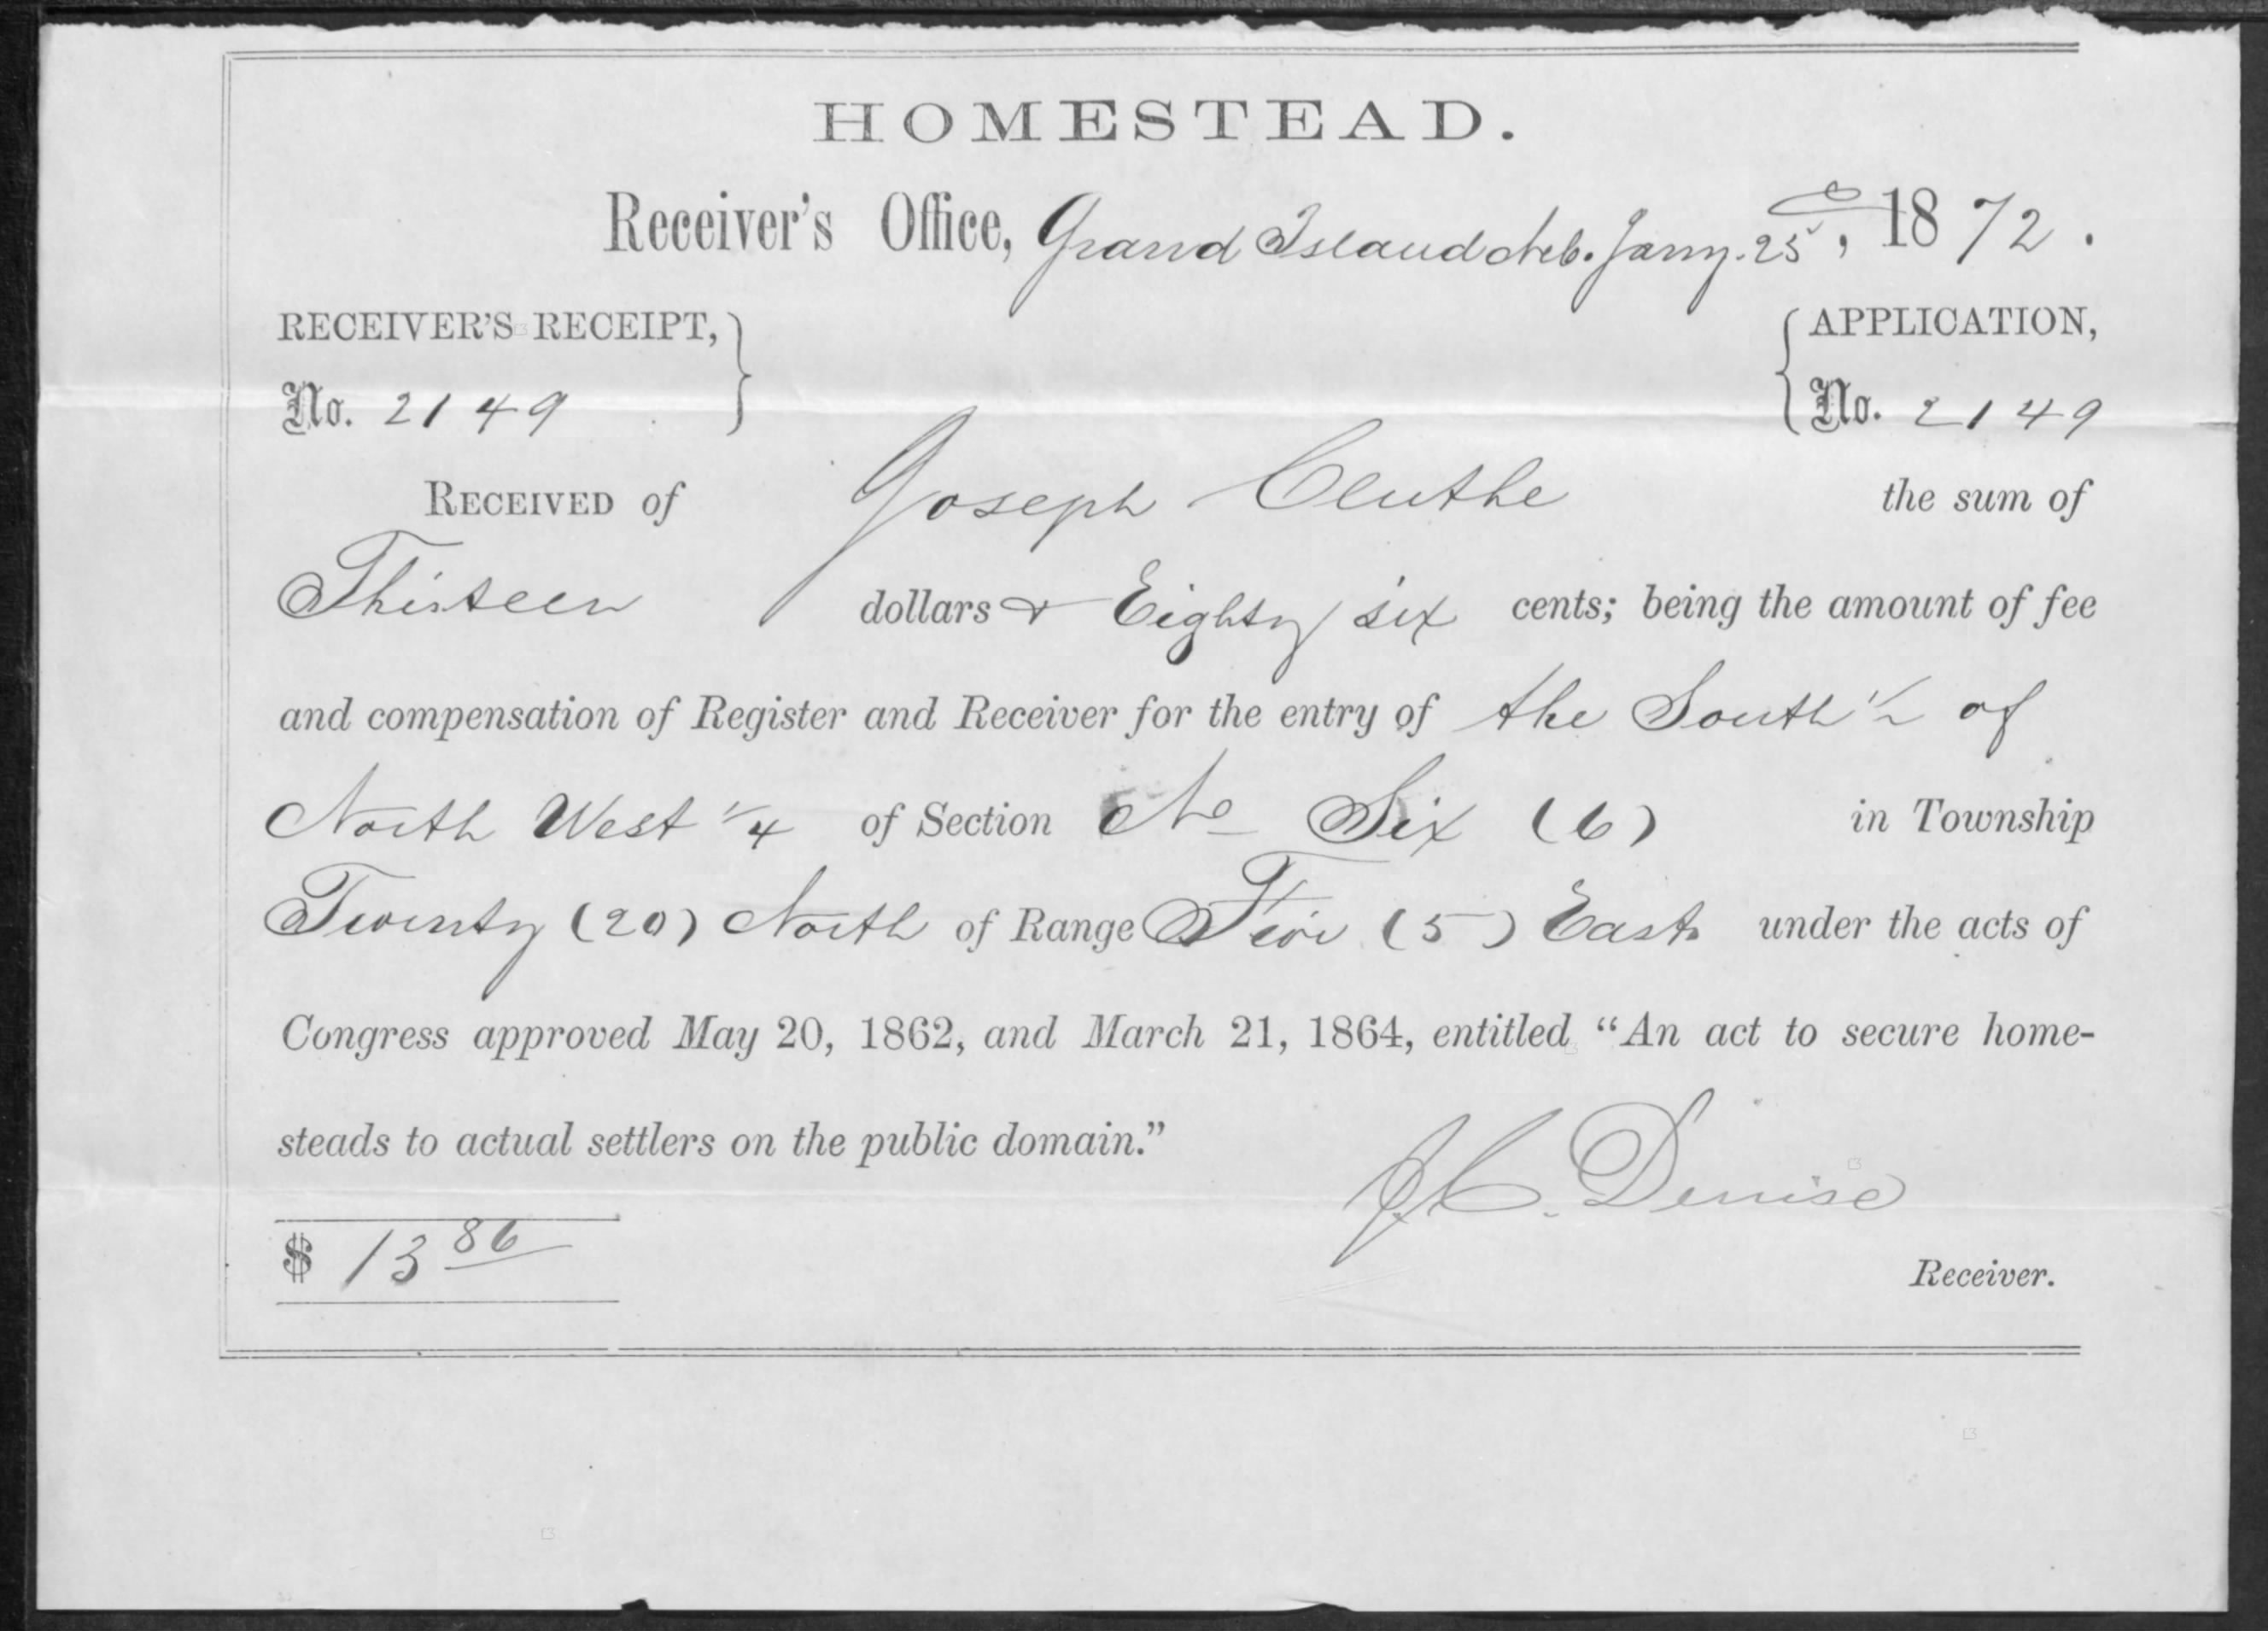 HOMESTEAD.
Receiver's Office, Grand Island Neb. Jany. 25, 1872.
RECEIVER'S RECEIPT, } { APPLICATION,
No. 2149 No. 2149
RECEIVED of Joseph Cluthe the sum of
Thirteen dollars & Eighty six cents; being the amount of fee
and compensation of Register and Receiver for the entry of the South 1/2 of
North West 1/4 of Section No Six (6) in Township
Twenty (20) North of Range Five (5) East under the acts of
Congress approved May 20, 1862, and March 21, 1864, entitled "An act to secure home-
steads to actual settlers on the public domain."
J. C. Denise
$ 13 86
Receiver.